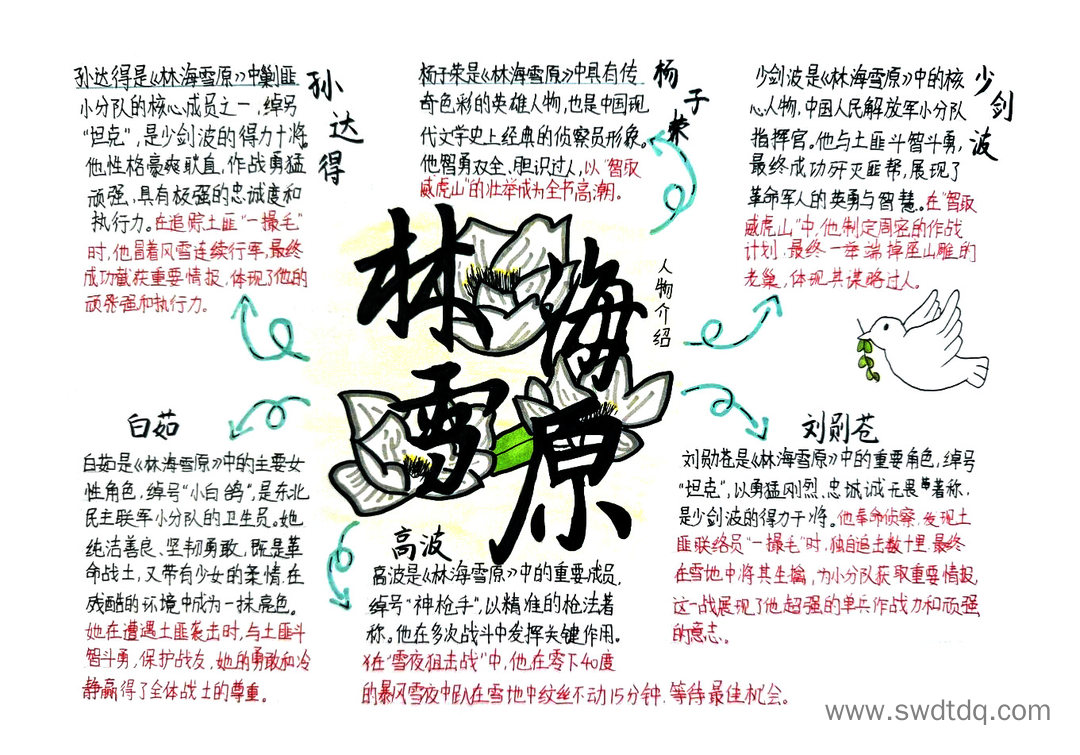 孙达得
孙达得是《林海雪原》中剿匪
小分队的核心成员之一,绰号
“坦克”,是少剑波的得力干将。
他性格豪爽耿直,作战勇猛
顽强,具有极强的忠诚度和
执行力。在追踪土匪“一撮毛”
时,他冒着风雪连续行军,最终
成功截获重要情报,体现了他的
顽强和执行力。
杨子荣
杨子荣是《林海雪原》中具有传
奇色彩的英雄人物,也是中国现
代文学史上经典的侦察员形象。
他智勇双全、胆识过人,以“智取
威虎山”的壮举成为全书高潮。
少剑波
少剑波是《林海雪原》中的核
心人物,中国人民解放军小分队
指挥官。他与土匪斗智斗勇,
最终成功歼灭匪帮,展现了
革命军人的英勇与智慧。在“智取
威虎山”中,他制定周密的作战
计划,最终一举端掉座山雕的
老巢,体现其谋略过人。
林海
雪原
人物介绍
白茹
白茹是《林海雪原》中的主要女
性角色,绰号“小白鸽”,是东北
民主联军小分队的卫生员。她
纯洁善良、坚韧勇敢,既是革
命战士,又带有少女的柔情,在
残酷的环境中成为一抹亮色。
她在遭遇土匪袭击时,与土匪斗
智斗勇,保护战友,她的勇敢和冷
静赢得了全体战士的尊重。
高波
高波是《林海雪原》中的重要成员,
绰号“神枪手”,以精准的枪法著
称。他在多次战斗中发挥关键作用。
在“雪夜狙击战”中,他在零下40度
的暴风雪夜中趴在雪地中纹丝不动15分钟,等待最佳机会。
刘勋苍
刘勋苍是《林海雪原》中的重要角色,绰号
“坦克”,以勇猛刚烈、忠诚诚无畏著称,
是少剑波的得力干将。他奉命侦察,发现土
匪联络员“一撮毛”时,独自追击数十里,最终
在雪地中将其生擒,为小分队获取重要情报,
这一战展现了他超强的单兵作战力和顽强
的意志。
www.swdtdq.com